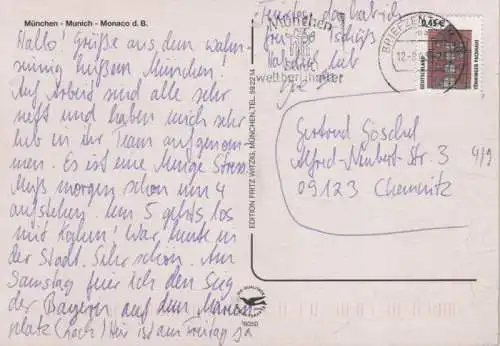 München - Munich - Monaco d. B.
Hallo! Grüße aus dem wahn-
sinnig heißem München!
Auf Arbeit sind alle sehr
nett und haben mich sehr
lieb in ihr Team aufgenom-
men. Es ist eine Menge Stress.
Muß morgen schon um 4
aufstehen. Um 5 gehts los
mit fahren! War heute in
der Stadt. Sehr schön. Am
Samstag feier ich den Sieg
der Bayern auf dem Marien-
platz (hoch) Hier ist am Freitag ja
das hab ich
frei
Tschüß
lieb
München
weltberühmter
EDITION FRITZ WITZIG, MÜNCHEN, TEL.
BRIEFZENTRUM
0,45 €
DEUTSCHLAND
Gertrud Göschel
Alfred-Neubert-Str. 3
4/9
09123 Chemnitz